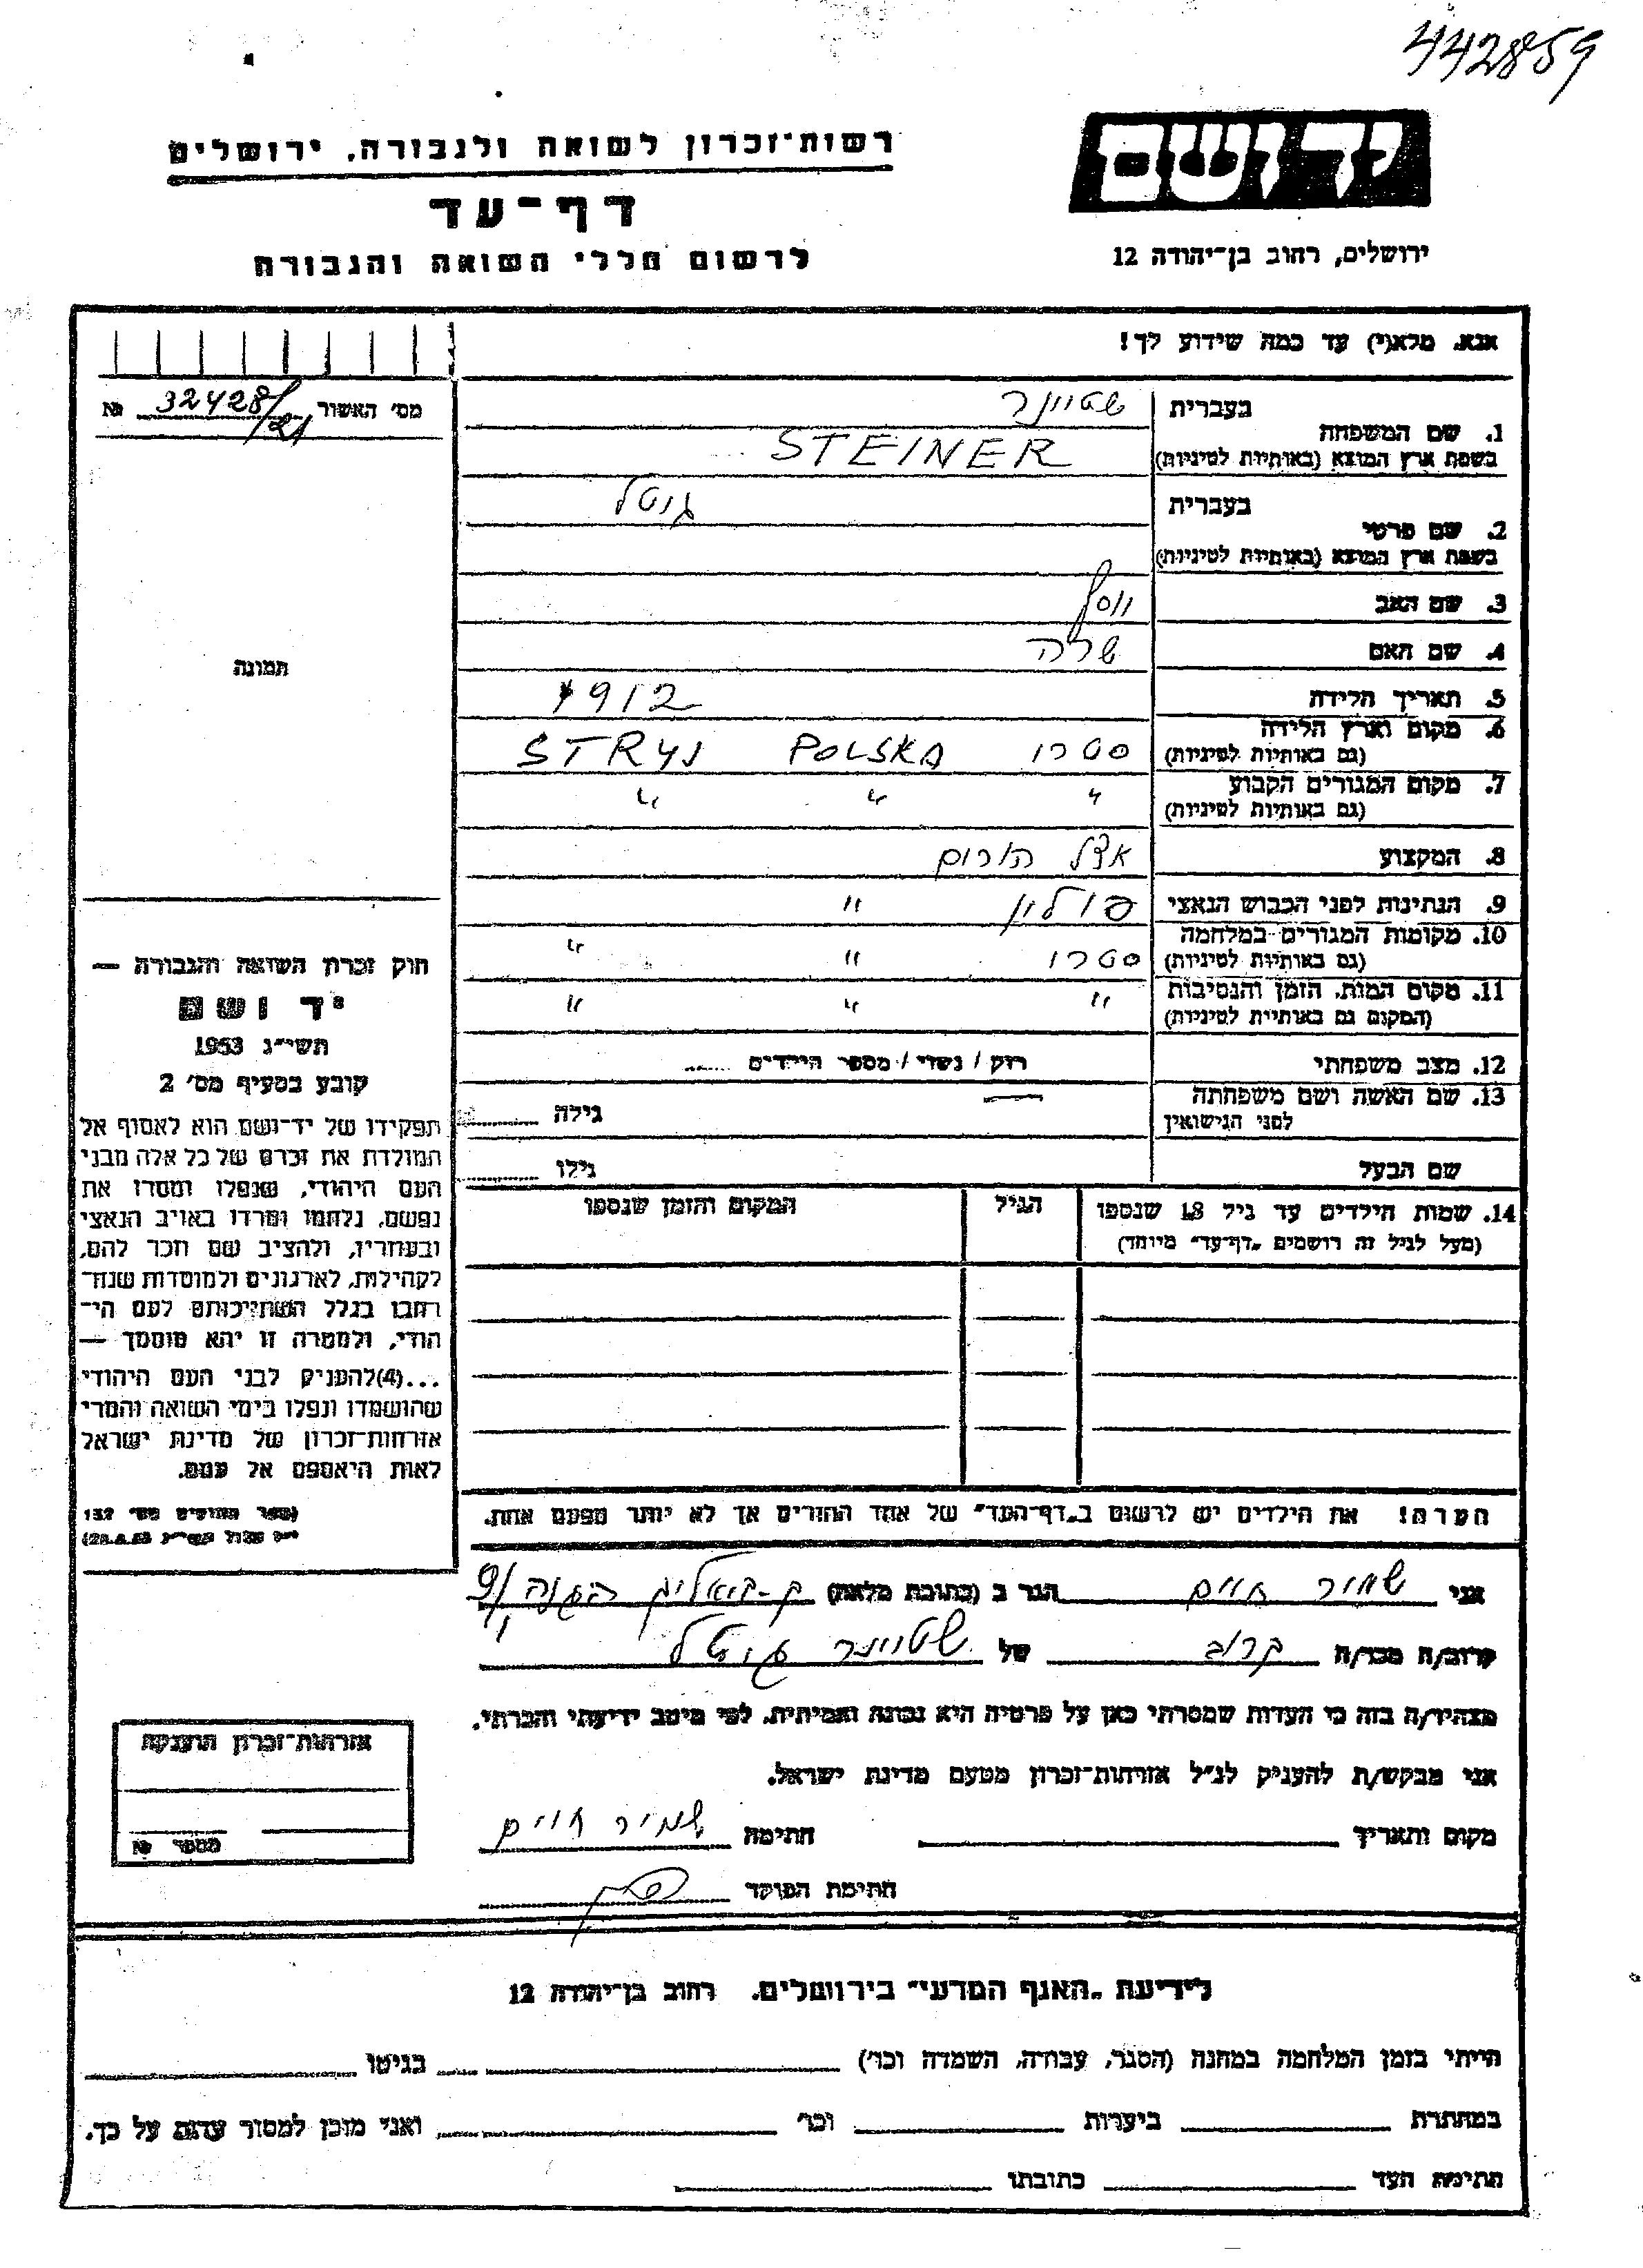 442859
רשות־זכרון לשואה ולגבורה, ירושלים
יד ושם
דף־עד
לרשום חללי השואה והגבורה
ירושלים, רחוב בן־יהודה 12
אנא, מלא(י) עד כמה שידוע לך!
מס' האשור 32428/21 №
בעברית שטיינר
1. שם המשפחה
בשפת ארץ המוצא (באותיות לטיניות) STEINER
בעברית גוטל
2. שם פרטי
בשפת ארץ המוצא (באותיות לטיניות)
3. שם האב יוסף
4. שם האם שרה
תמונה
5. תאריך הלידה 1912
6. מקום וארץ הלידה
(גם באותיות לטיניות) סטרי POLSKA STRYJ
7. מקום המגורים הקבוע " " "
(גם באותיות לטיניות)
8. המקצוע אצל הורים
9. הנתינות לפני הכבוש הנאצי פולין "
10. מקומות המגורים במלחמה
(גם באותיות לטיניות) סטרי " "
11. מקום המות, הזמן והנסיבות " " "
(המקום גם באותיות לטיניות)
12. מצב משפחתי רווק / נשוי / מספר הילדים ......
13. שם האשה ושם משפחתה
לפני הנישואין
גילה
שם הבעל גילו
14. שמות הילדים עד גיל 18 שנספו הגיל המקום והזמן שנספו
(מעל לגיל זה רושמים „דף־עד" מיוחד)
חוק זכרון השואה והגבורה —
יד ושם
תשי״ג 1953
קובע בסעיף מס' 2
תפקידו של יד־ושם הוא לאסוף אל
המולדת את זכרם של כל אלה מבני
העם היהודי, שנפלו ומסרו את
נפשם, נלחמו ומרדו באויב הנאצי
ובעוזריו, ולהציב שם וזכר להם,
לקהילות, לארגונים ולמוסדות שנח־
רבו בגלל השתייכותם לעם הי־
הודי, ולמטרה זו יהא מוסמך —
...(4) להעניק לבני העם היהודי
שהושמדו ונפלו בימי השואה והמרי
אזרחות־זכרון של מדינת ישראל
לאות היאספם אל עמם.
(ספר החוקים מס' 132
הערה! את הילדים יש לרשום ב„דף־העד" של אחד ההורים אך לא יותר מפעם אחת.
אני שמיר חיים הגר ב (כתובת מלאה) ק-ביאליק ההגנה 9/
קרוב/ה מכר/ה קרוב של שטיינר גוטל
מצהיר/ה בזה כי העדות שמסרתי כאן על פרטיה היא נכונה ואמיתית, לפי מיטב ידיעתי והכרתי.
אני מבקש/ת להעניק לנ״ל אזרחות־זכרון מטעם מדינת ישראל.
מקום ותאריך חתימה שמיר חיים
חתימת הפוקד
אזרחות־זכרון הוענקה
מספר №
לידיעת „האגף המדעי" בירושלים. רחוב בן־יהודה 12
הייתי בזמן המלחמה במחנה (הסגר, עבודה, השמדה וכו') בגיטו
במחתרת ביערות וכו' ואני מוכן למסור עדות על כך.
חתימת העד כתובתו